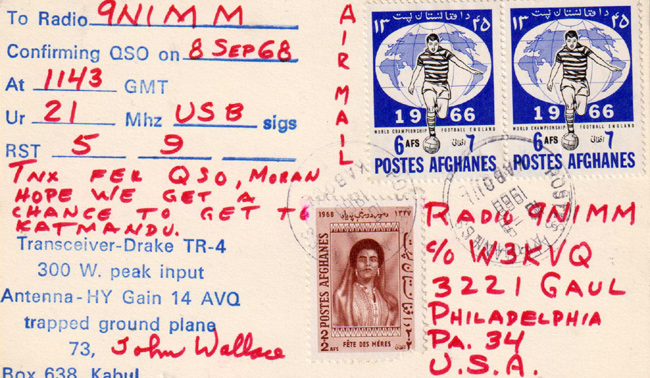 To Radio 9N1MM
Confirming QSO on 8 SEP 68
At 1143 GMT
Ur 21 Mhz USB sigs
RST 5 9
TNX FER QSO, MORAN
HOPE WE GET A
CHANCE TO GET TO
KATMANDU.
Transceiver-Drake TR-4
300 W. peak input
Antenna-HY Gain 14 AVQ
trapped ground plane
73, John Wallace
Box 638, Kabul
AIR MAIL
۱۳ د افغانستان پست ۴۵
1966
WORLD CHAMPIONSHIP FOOTBALL ENGLAND
6 AFS ۶ افغانۍ
POSTES AFGHANES
۱۳ د افغانستان پست ۴۵
1966
WORLD CHAMPIONSHIP FOOTBALL ENGLAND
6 AFS
POSTES AFGHANES
1968 ۱۳۴۷
POSTES AFGHANES
2+2 AFS
FÊTE DES MÈRES
RADIO 9N1MM
c/o W3KVQ
3221 GAUL
PHILADELPHIA
PA. 34
U.S.A.